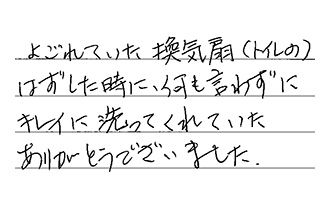 よごれていた 換気扇(トイレの)
はずした時に、何も言わずに
キレイに洗ってくれていた
ありがとうございました.